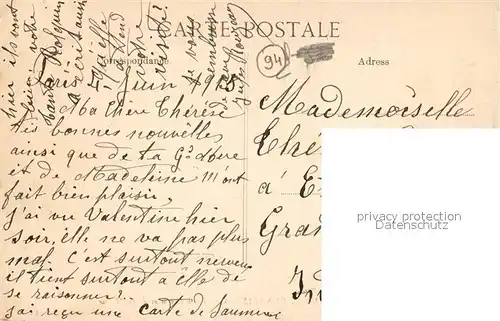 CARTE POSTALE
Correspondance
Adresse
94
Juin 19
Ma chère Thérèse
tes bonnes nouvelles
ainsi que de ta Gd Mère
et de Madeleine m'ont
fait bien plaisir,
j'ai vu Valentine hier
soir, elle ne va pas plus
mal. C'est surtout nerveux
il tient surtout à elle de
se raisonner?..
j'ai reçu une carte de Saumur
hier ils vont
bien votre
tante
a écrit aussi
elle
attend
votre
visite!
je vous
embrasse
Mademoiselle
à
privacy protection
Datenschutz